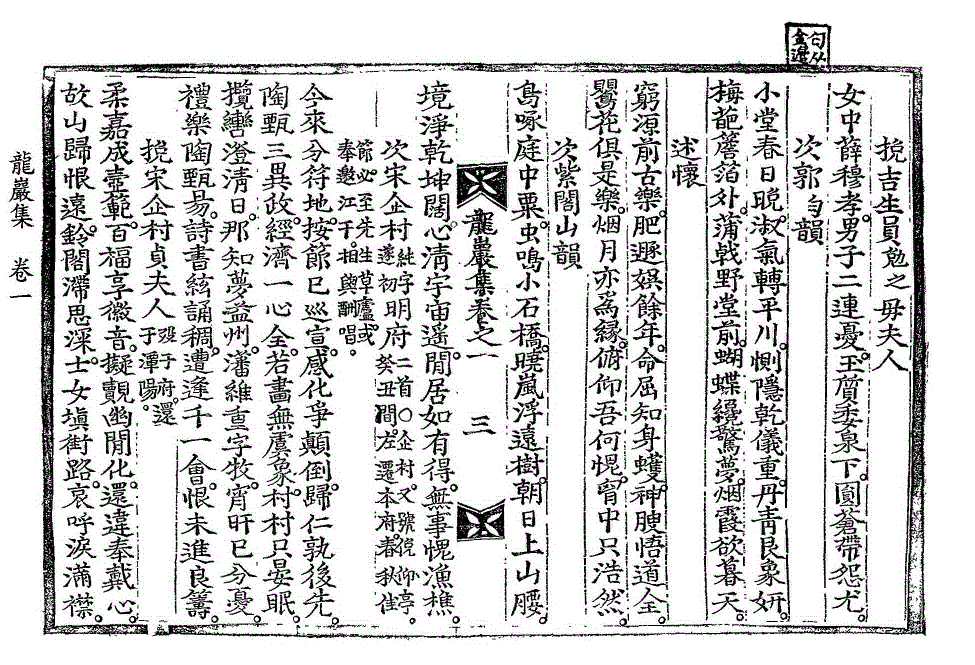 挽吉生員勉之母夫人
女中薛穆孝男子二連憂玉質委泉下圓蒼帶怨尤
次郭勻韻
小堂春日晩淑氣轉平川惻隱乾儀重丹靑艮象姸
梅葩簷箔外蒲戟野堂前蝴蝶纔驚夢烟霞欲暮天
述懷
窮源前古樂肥遯娛餘年命屈知身蠖神腴悟道全
鸎花俱是樂烟月亦爲緣俯仰吾何愧胷中只浩然
次紫閣山韻
鳥啄庭中粟虫鳴小石橋曉嵐浮遠樹朝日上山腰
龍巖集卷之一 三
境淨乾坤闊心淸宇宙遙閒居如有得無事愧漁樵
次宋企村純字明府二首○企村又號俛仰亭
遂初 癸丑間左遷本府春秋佳
節必至先生草廬或
奉邀江干相與酬唱
今來分符地按節已巡宣感化爭顚倒歸仁孰後先
陶甄三異政經濟一心全若畫無虞象村村只晏眠
攬轡澄淸日那知夢益州藩維重字牧宵旰已分憂
禮樂陶甄易詩書絃誦稠遭逢千一會恨未進良籌
挽宋企村貞夫人歿于府還
于潭陽
柔嘉成壼範百福享徽音擬覩幽閒化還違奉戴心
故山歸恨遠鈴閣滯思深士女塡街路哀呼淚滿襟
龍巖集 卷一